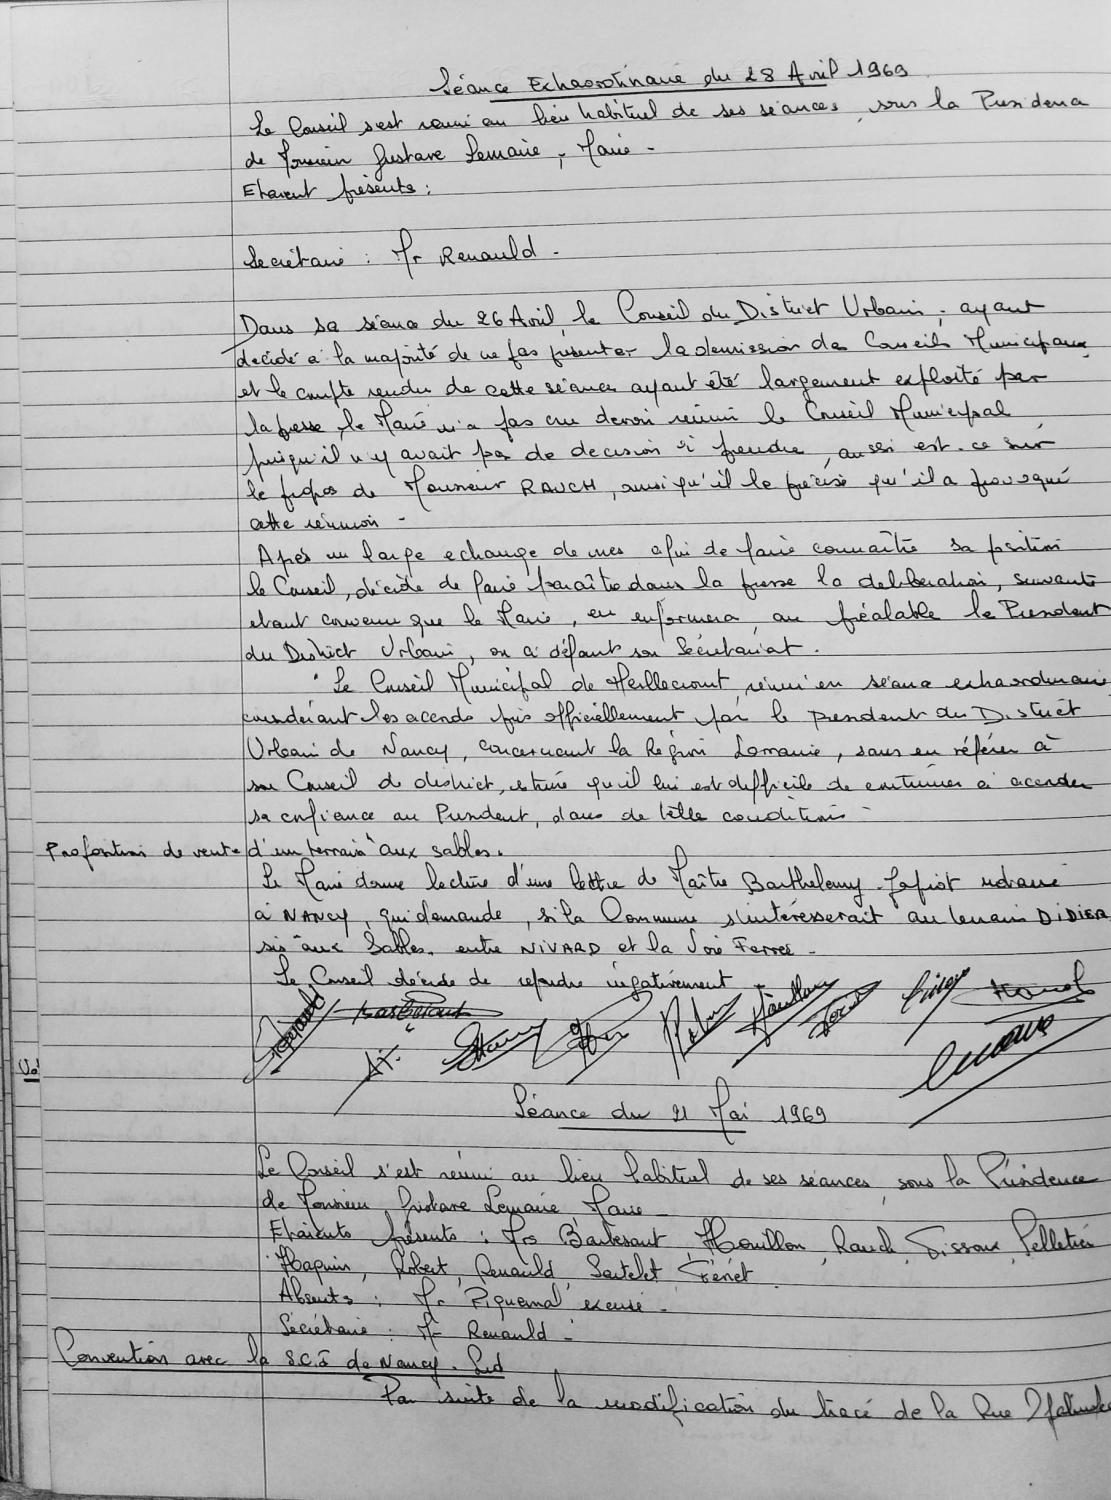 Séance Extraordinaire du 28 Avril 1969
Le Conseil s'est réuni au lieu habituel de ses séances, sous la Présidence
de Monsieur Gustave Lemaire, Maire -
Etaient présents :
Secrétaire : Mr Renauld -
Dans sa séance du 26 Avril, le Conseil du District Urbain, ayant
décidé à la majorité de ne pas présenter la démission des Conseils Municipaux
et le compte rendu de cette séance ayant été largement exploité par
la presse, le Maire n'a pas cru devoir réunir le Conseil Municipal
puisqu'il n'y avait pas de décision à prendre, aussi est-ce sur
le propos de Monsieur RAUCH, ainsi qu'il le précise qu'il a provoqué
cette réunion -
Après un large echange de vues afin de faire connaître sa position
le Conseil, décide de faire paraître dans la presse la délibération, suivante
étant convenu que le Maire, en informera, au préalable le Président
du District Urbain, ou à défaut son Secrétariat.
" Le Conseil Municipal de Heillecourt, réuni en séance extraordinaire
considérant les accords pris officiellement par le président du District
Urbain de Nancy, concernant la Région Lorraine, sans en référer à
son Conseil de district, estime qu'il lui est difficile de continuer à accorder
sa confiance au Président, dans de telle conditions -
Proposition de vente d'un terrain "aux sables.
Le Maire donne lecture d'une lettre de Maître Barthelemy-Jopiot notaire
à NANCY, qui demande, si la Commune s'intéresserait au terrain DIDIER
sis "aux Sables, entre NIVARD et la Voie Ferrée -
Le Conseil décide de répondre négativement
Séance du 21 Mai 1969
Le Conseil s'est réuni au lieu habituel de ses séances, sous la Présidence
de Monsieur Gustave Lemaire Maire -
Etaients présents : Mrs Barbesant, Houillon, Rauch, Tissoux, Pelletier
Haquin, Robert, Renauld, Sertelet, Férét
Absents : Mr Piquemal excusé -
Sécrétaire : Mr Renauld -
Convention avec la S.C.I de Nancy-Sud
Par suite de la modification du tracé de la Rue